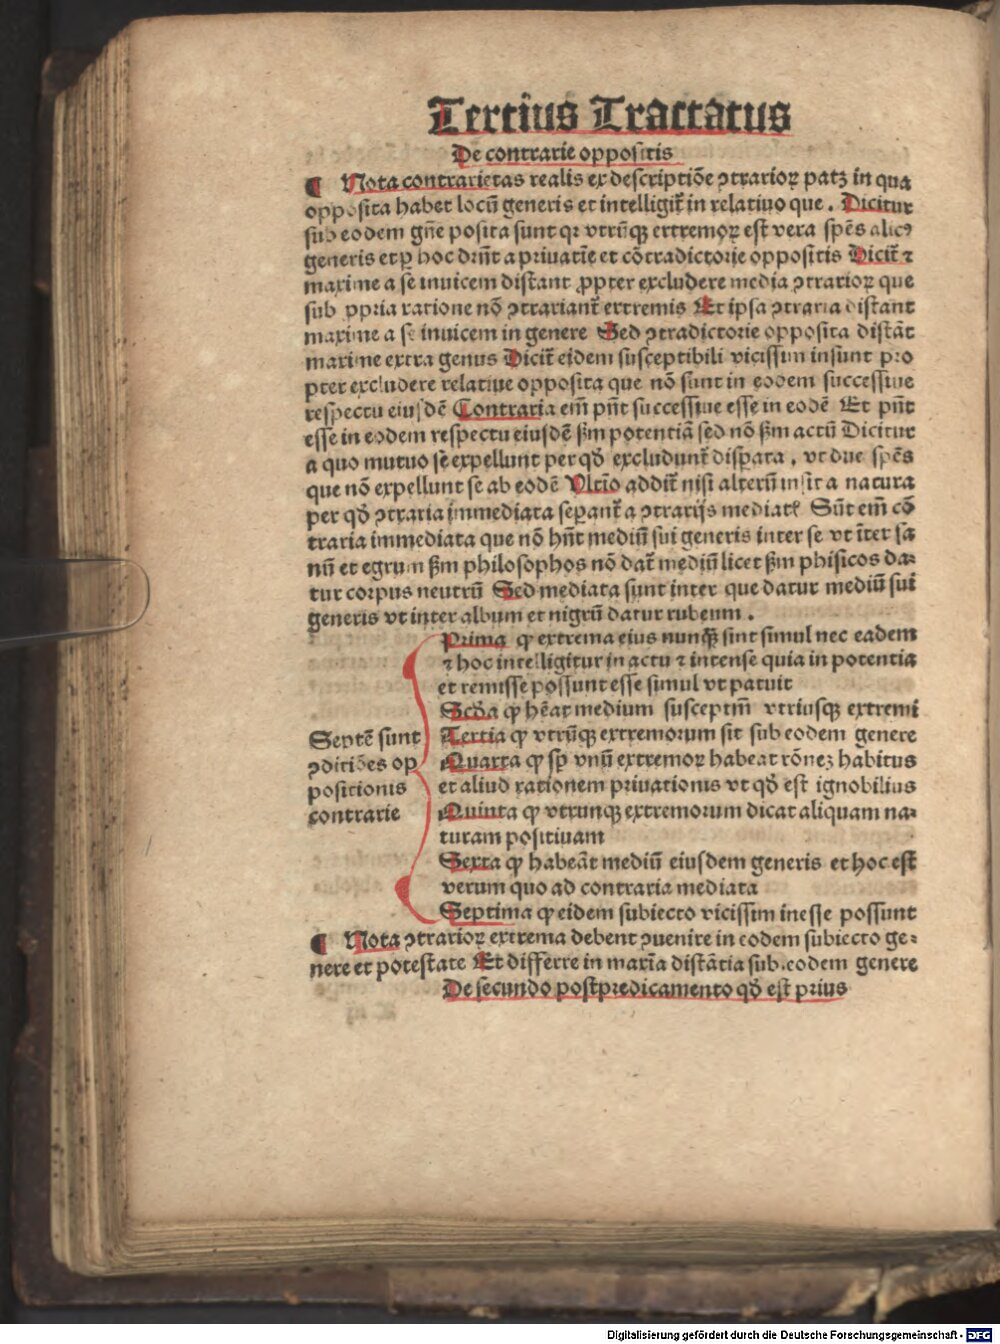 Tertius Tractatus
De contrarie oppositis
¶ Nota contrarietas realis ex descriptiõe ↄtrarioꝝ patꝫ in qua
opposita habet locũ generis et intelligit̃ in relatiuo que . Dicitur
sub eodem gñe posita sunt qꝛ vtrũqꝫ extremoꝝ est vera spẽs alicꝰ
generis et ꝑ hoc drñt a priuatiẽ et cõtradictorie oppositis Dicit̃ ⁊
maxime a se inuicem distant ꝓpter excludere media ↄtrarioꝝ que
sub ꝓpria ratione nõ ↄtrariant̃ extremis Et ipsa ↄtraria distant
maxime a se inuicem in genere Sed ↄtradictorie opposita distãt
maxime extra genus Dicit̃ eidem susceptibili vicissim insunt pro
pter excludere relatiue opposita que nõ sunt in eodem successiue
respectu eiusdẽ Contraria em̃ pñt successiue esse in eodẽ Et pñt
esse in eodem respectu eiusdẽ ẞm potentiã sed nõ ẞm actũ Dicitur
a quo mutuo se expellunt per qḋ excludunt̃ disꝑata . vt due spẽs
que nõ expellunt se ab eodẽ Vltĩo addit̃ nisi alterũ insit a natura
per qḋ ↄtraria immediata seꝑant̃ a ↄtrarijs mediatꝭ Sũt em̃ cõ
traria immediata que nõ hñt mediũ sui generis inter se vt ĩter sa
nũ et egrum ẞm philosophos nõ dat̃ mediũ licet ẞm phisicos da⸗
tur corpus neutrũ Sed mediata sunt inter que datur mediũ sui
generis vt inter album et nigrũ datur rubeum .
Prima ꝙ extrema eius nunqꝫ sint simul nec eadem
⁊ hoc intelligitur in actu ⁊ intense quia in potentia
et remisse possunt esse simul vt patuit
Scḋa ꝙ hẽat medium susceptm̃ vtriusqꝫ extremi
Septẽ sunt
ↄditiões op
positionis
contrarie
Tertia ꝙ vtrũqꝫ extremorum sit sub eodem genere
Quarta ꝙ sꝑ vnũ extremoꝝ habeat rõnez habitus
et aliud rationem priuationis vt qḋ est ignobilius
Quinta ꝙ vtrunqꝫ extremorum dicat aliquam na⸗
turam positiuam
Sexta ꝙ habeãt mediũ eiusdem generis et hoc est
verum quo ad contraria mediata
Septima ꝙ eidem subiecto vicissim inesse possunt
¶ Nota ↄtrarioꝝ extrema debent ↄuenire in eodem subiecto ge⸗
nere et potestate Et differre in maxĩa distãtia sub.eodem genere
De secundo postpredicamento qḋ est prius
Digitalisierung gefördert durch die Deutsche Forschungsgemeinschaft - DFG